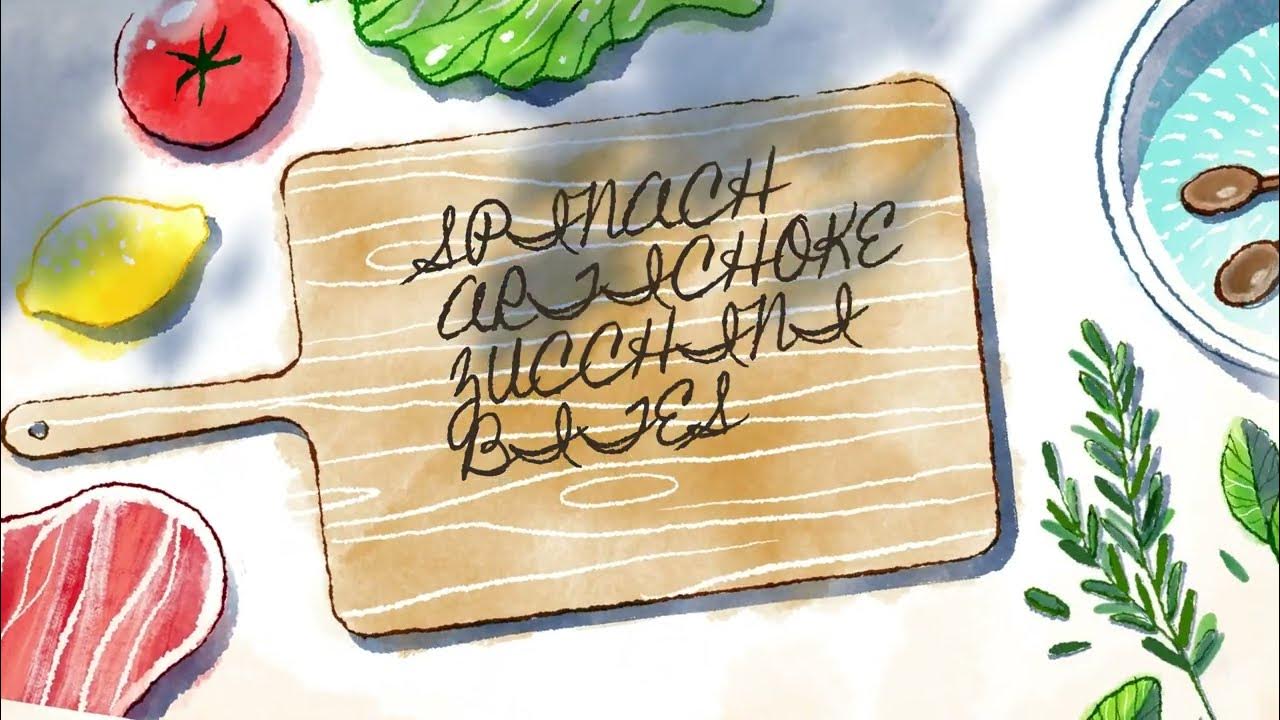 SPINACH
ARTICHOKE
ZUCCHINI
BITES